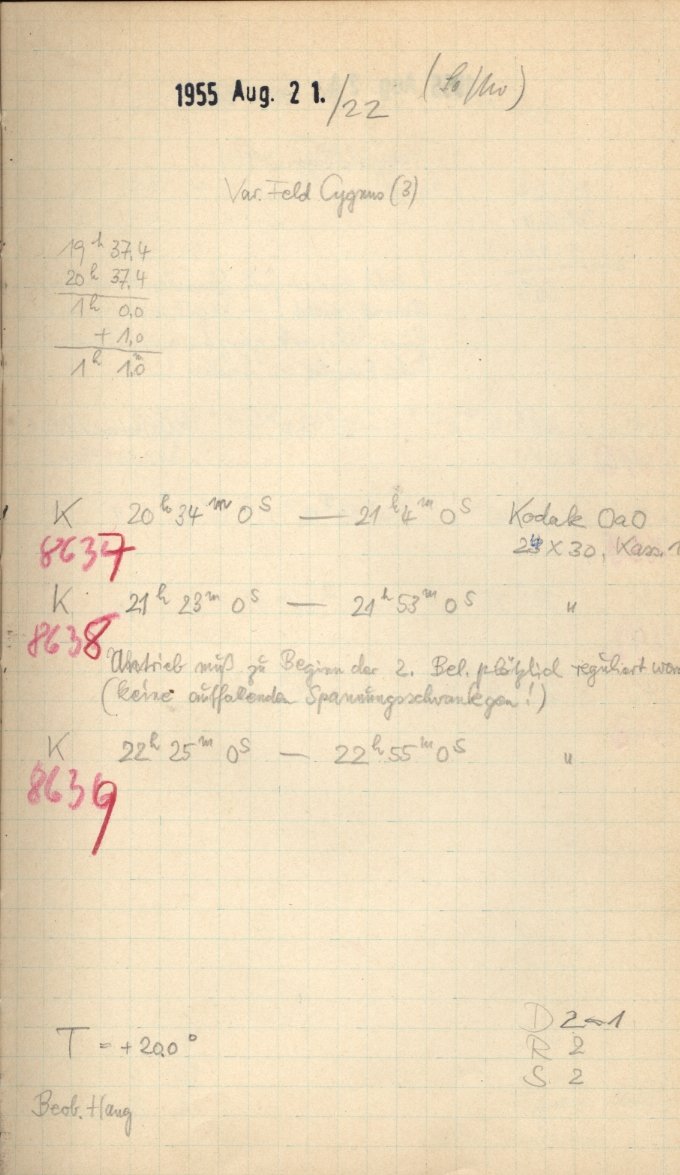 1955 Aug. 21./22 (So/Mo)
Var. Feld Cygnus (3)
19h 37,4
20h 37,4
1h 0,0
+ 1,0
1h 1,0m
K 20h 34m 0s — 21h 4m 0s Kodak OaO
8637 24 x 30, Kass. 1
K 21h 23m 0s — 21h 53m 0s "
8638
Antrieb muß zu Beginn der 2. Bel. plötzlich reguliert
(keine auffallenden Spannungsschwankgen!)
K 22h 25m 0s — 22h 55m 0s "
8639
D 2-1
T = +20,0°
R 2
S 2
Beob. Haug